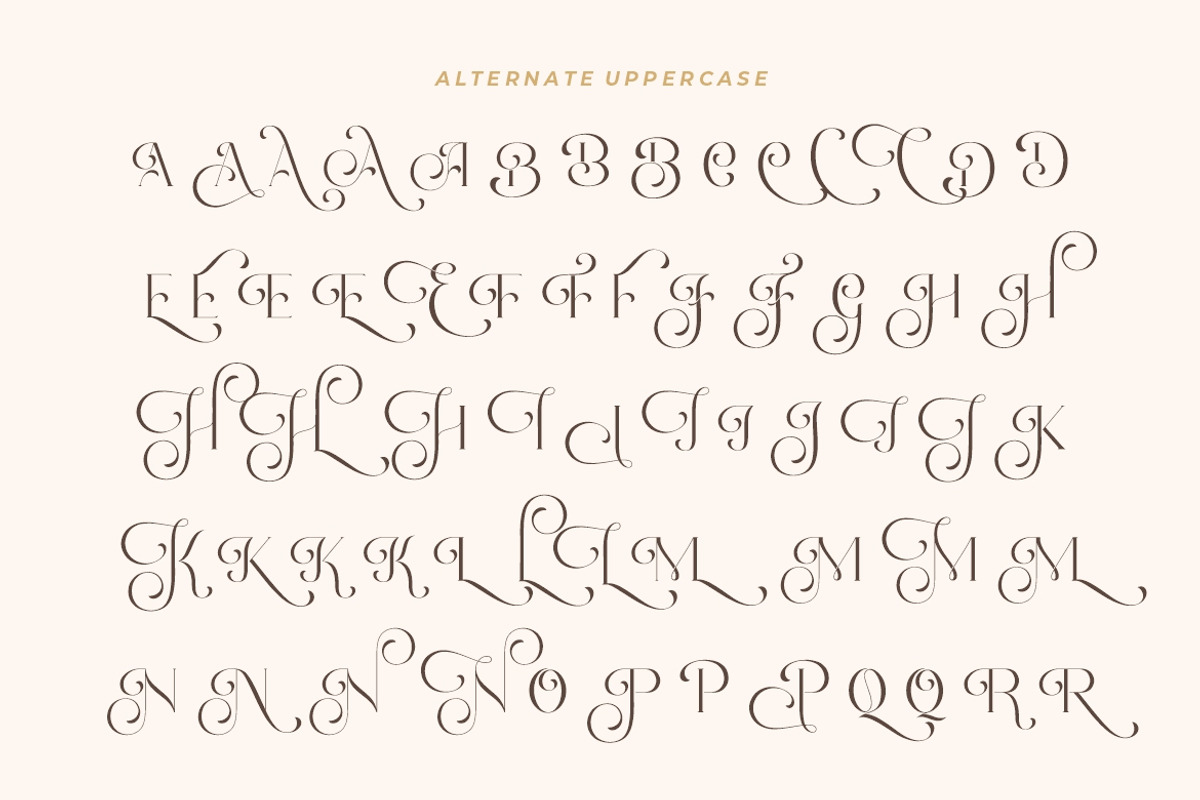 ALTERNATE UPPERCASE
A A A A A B B B C C C C D D
E E E E E F F F F F G H H
H H H I I I I J J J K
K K K K L L L M M M M
N N N N O P P P Q Q R R